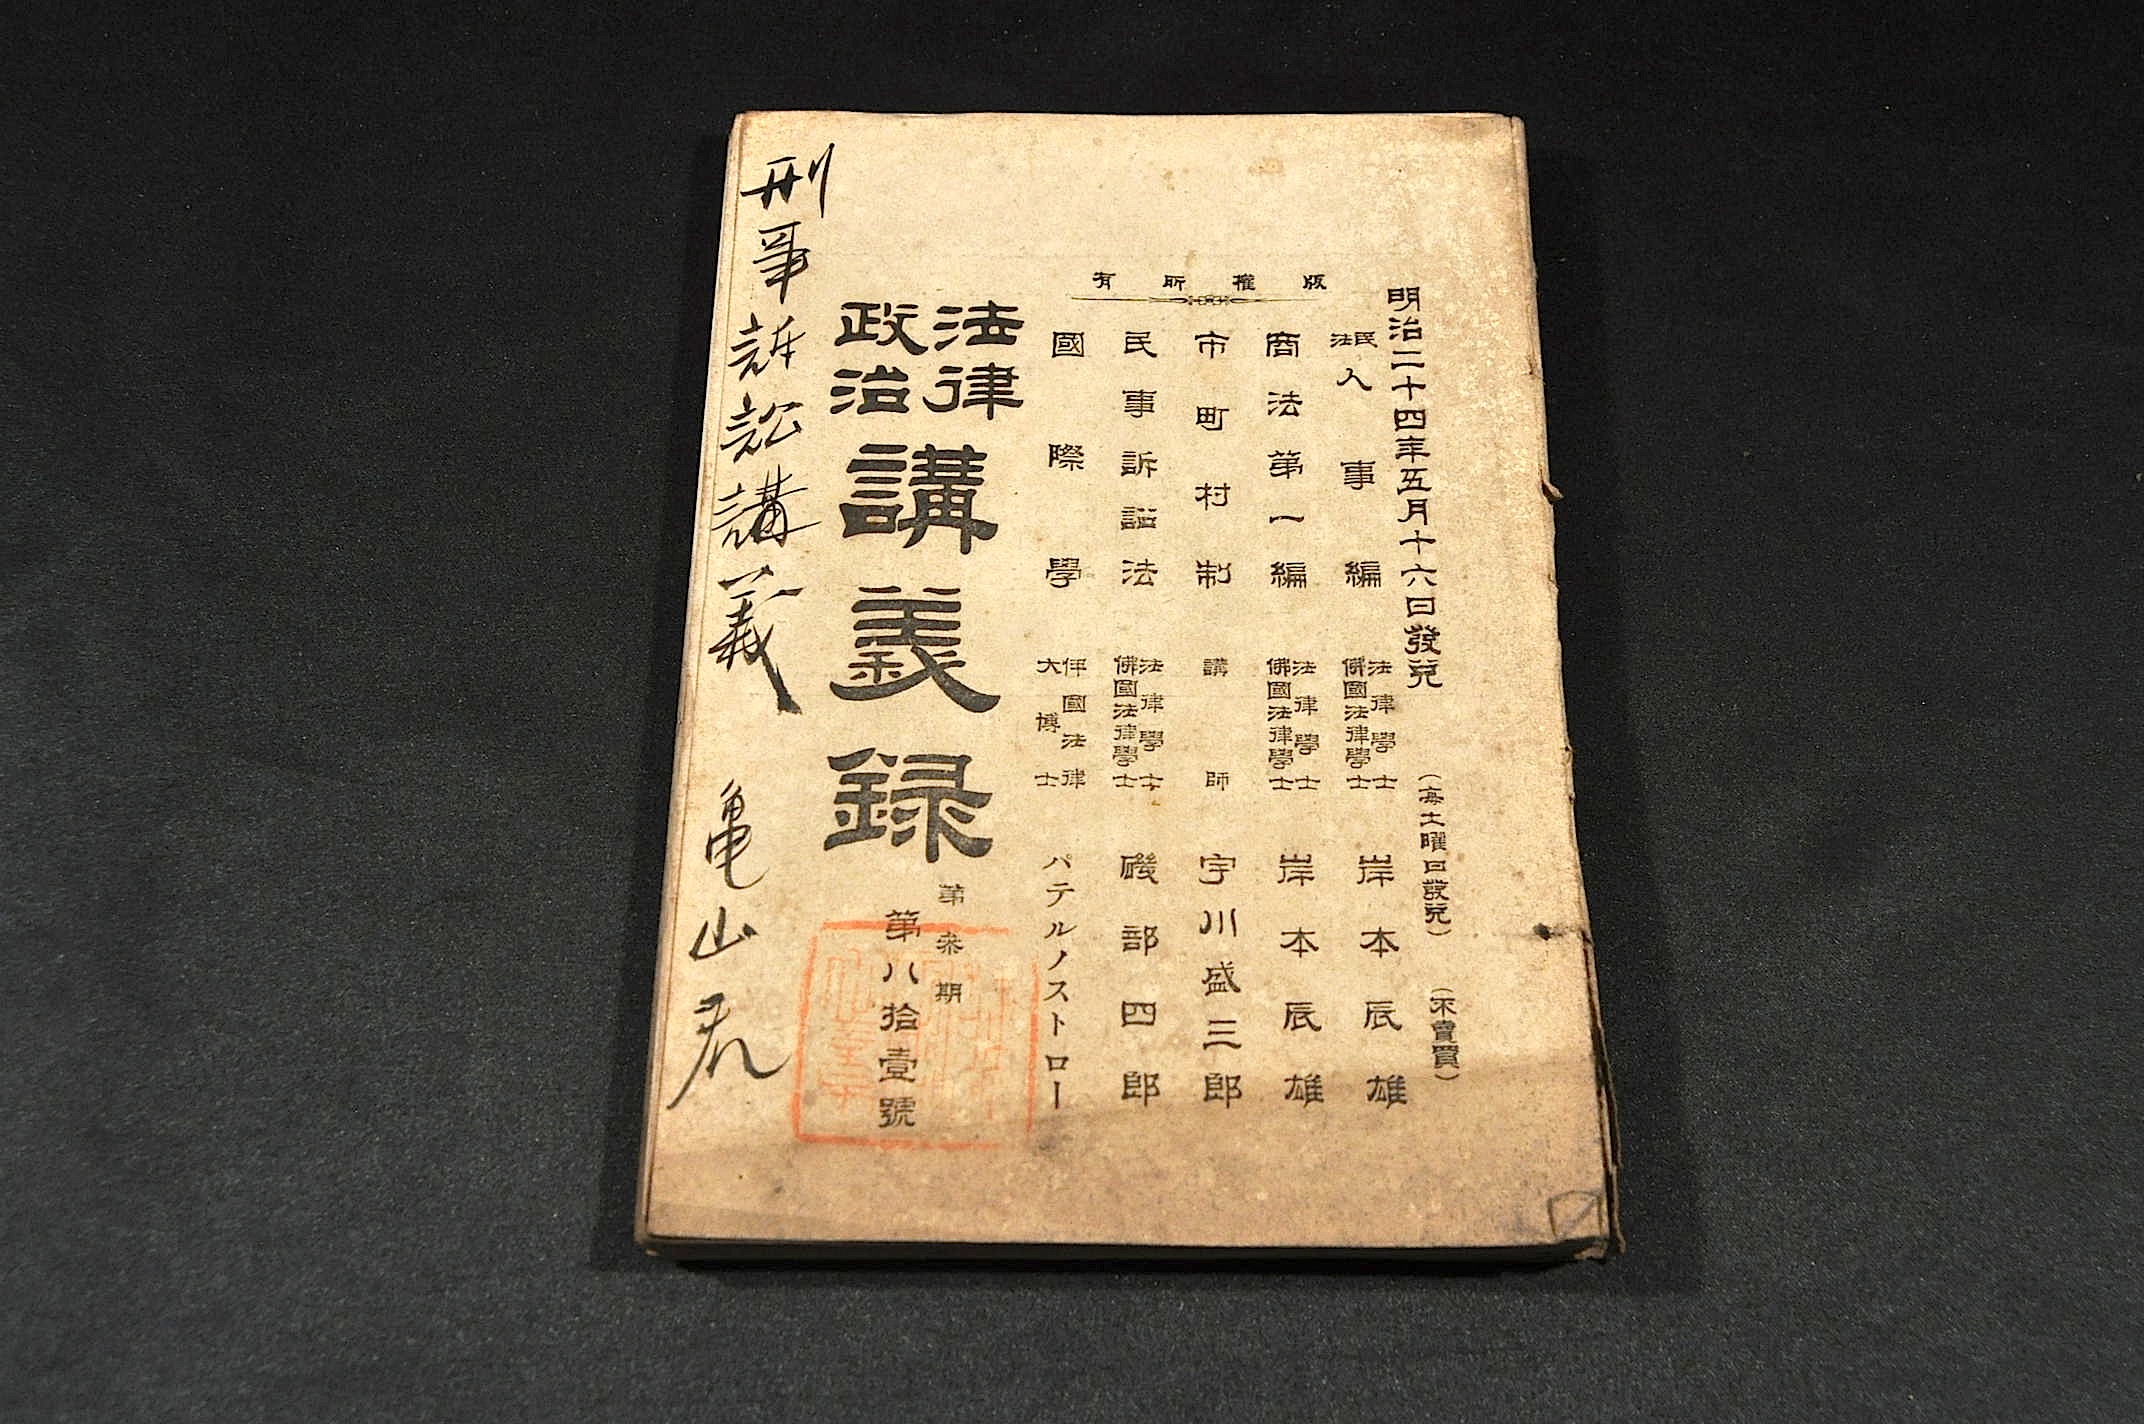 版權所有
明治二十四年五月十六日發兌 (每土曜日發兌) (不賣買)
民法人事編 法律學士 佛國法律學士 岸本辰雄
商法第一編 法律學士 佛國法律學士 岸本辰雄
市町村制 講師 宇川盛三郎
民事訴訟法 法律學士 佛國法律學士 磯部四郎
國際學 伊國法律大博士 パテルノストロー
法律政治講義録 第參期 第八拾壹號
刑事訴訟講義 亀山君